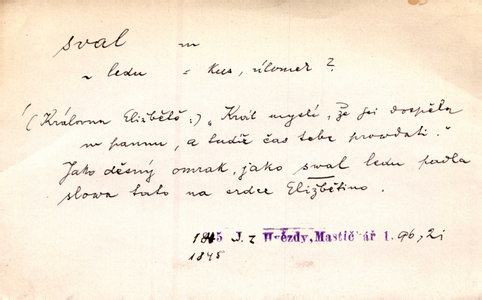 sval m
~ ledu = kus, úlomek ?
(Královna Eližbětě:) „Král myslí, že jsi dospěla
w pannu, a tudíž čas tebe prowdati.“
Jako děsný omrak, jako swal ledu padla
slowa tato na srdce Eližbětino.
1845 J. z Hvězdy, Mastičkář 1. 96, 2i
1845